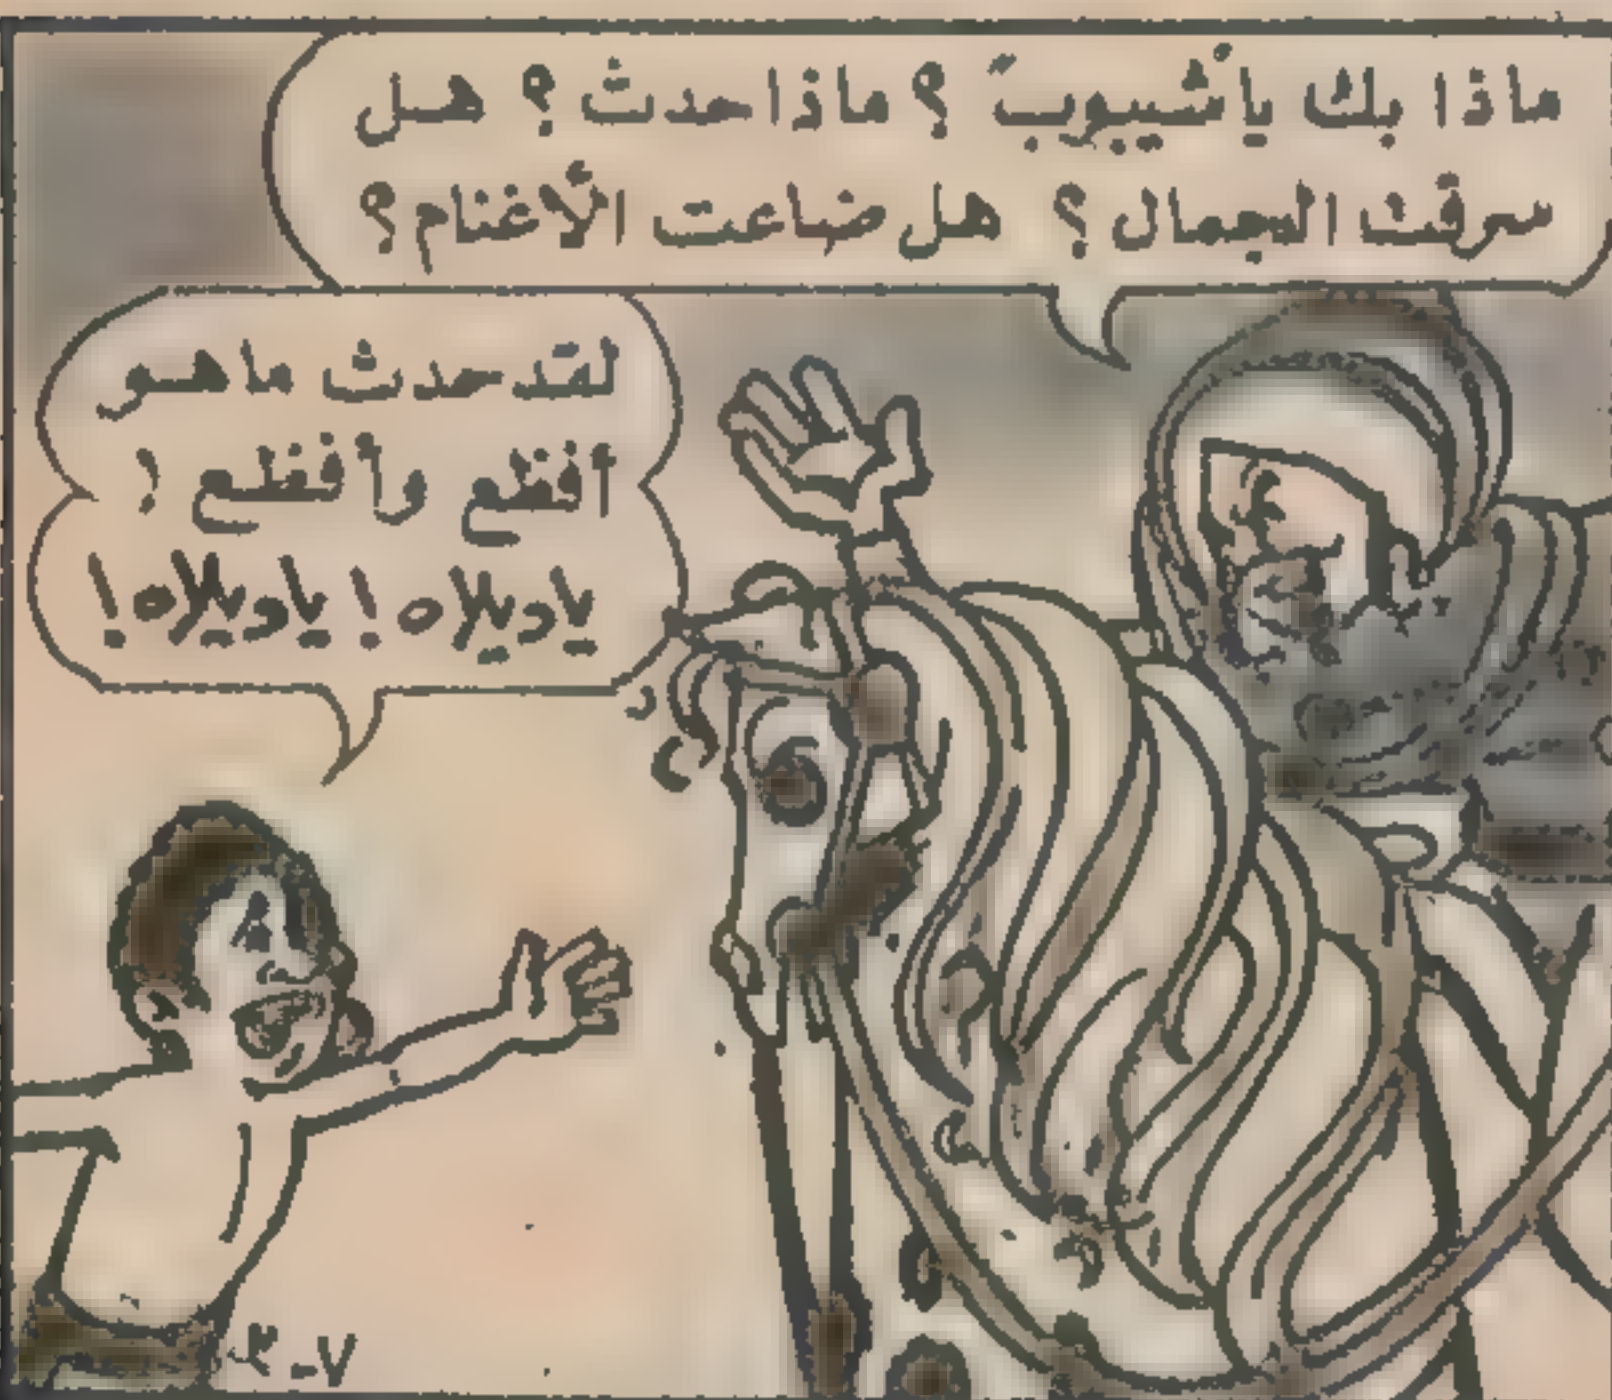 ماذا بك ياشيبوب؟ ماذا حدث؟ هل
سرقت الجمال؟ هل ضاعت الأغنام؟
لقد حدث ما هو
أفظع وأفظع!
ياويلاه! ياويلاه!
٧-٣